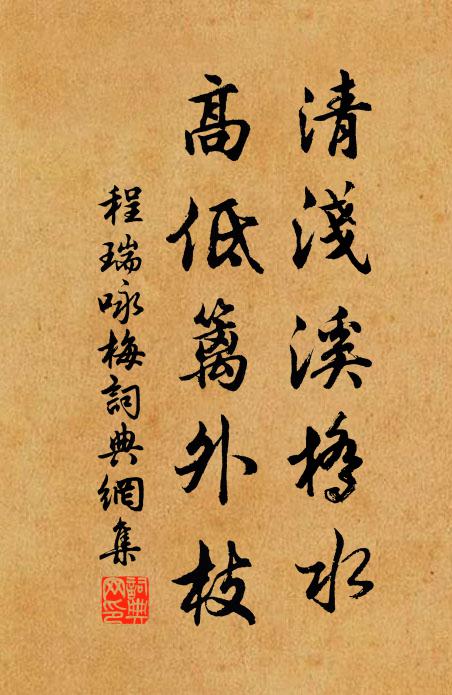 清淺溪橋水
高低籬外枝
程瑞咏梅詞典網集
詞典網印